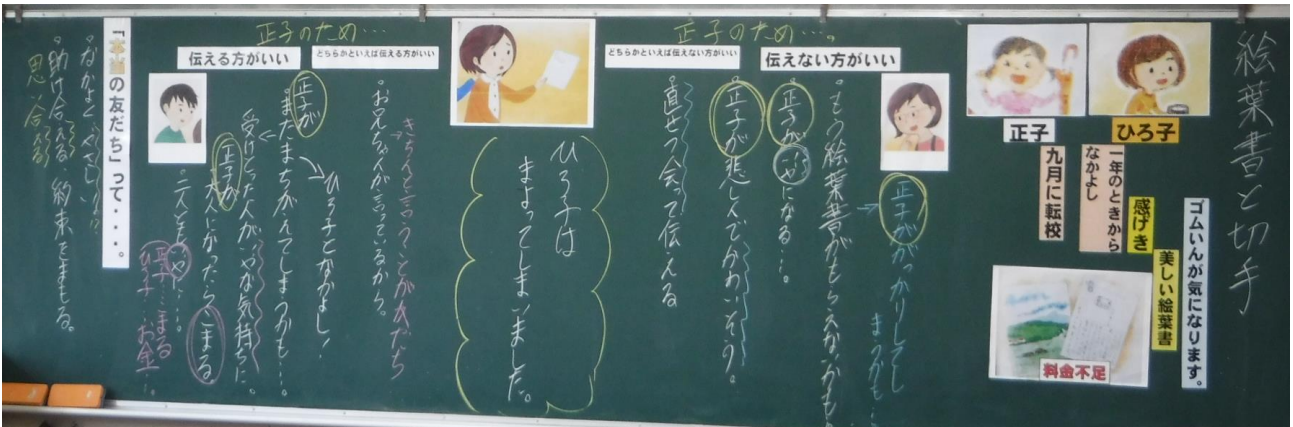 絵葉書と切手
ゴムいんが気になります。
美しい絵葉書
感げき
一年のときから
なかよし
ひろ子
正子
九月に転校
料金不足
正子のため…。
伝えない方がいい
どちらかといえば伝えない方がいい
正子ががっかりしてし
まうかも…
もう絵葉書がもらえないかも
正子が
になる…。
正子が悲しんでかわいそう。
直せつ会って伝える
ひろ子は
まよってしまいました。
正子のため…
どちらかといえば伝える方がいい
伝える方がいい
きちんと言うことが友だち
お兄ちゃんが言っているから。
ひろ子となかよし!
正子が
またまちがえてしまうかも…。
受けとった人がいやな気持ちに。
正子が
大人にかったらこまる
二人ともいや…。
正子…こまる
ひろ子…お金…。
「本当の友だち」って・・・。
なかよく、やさしい
助け合える、約束をまもる。
思い合える